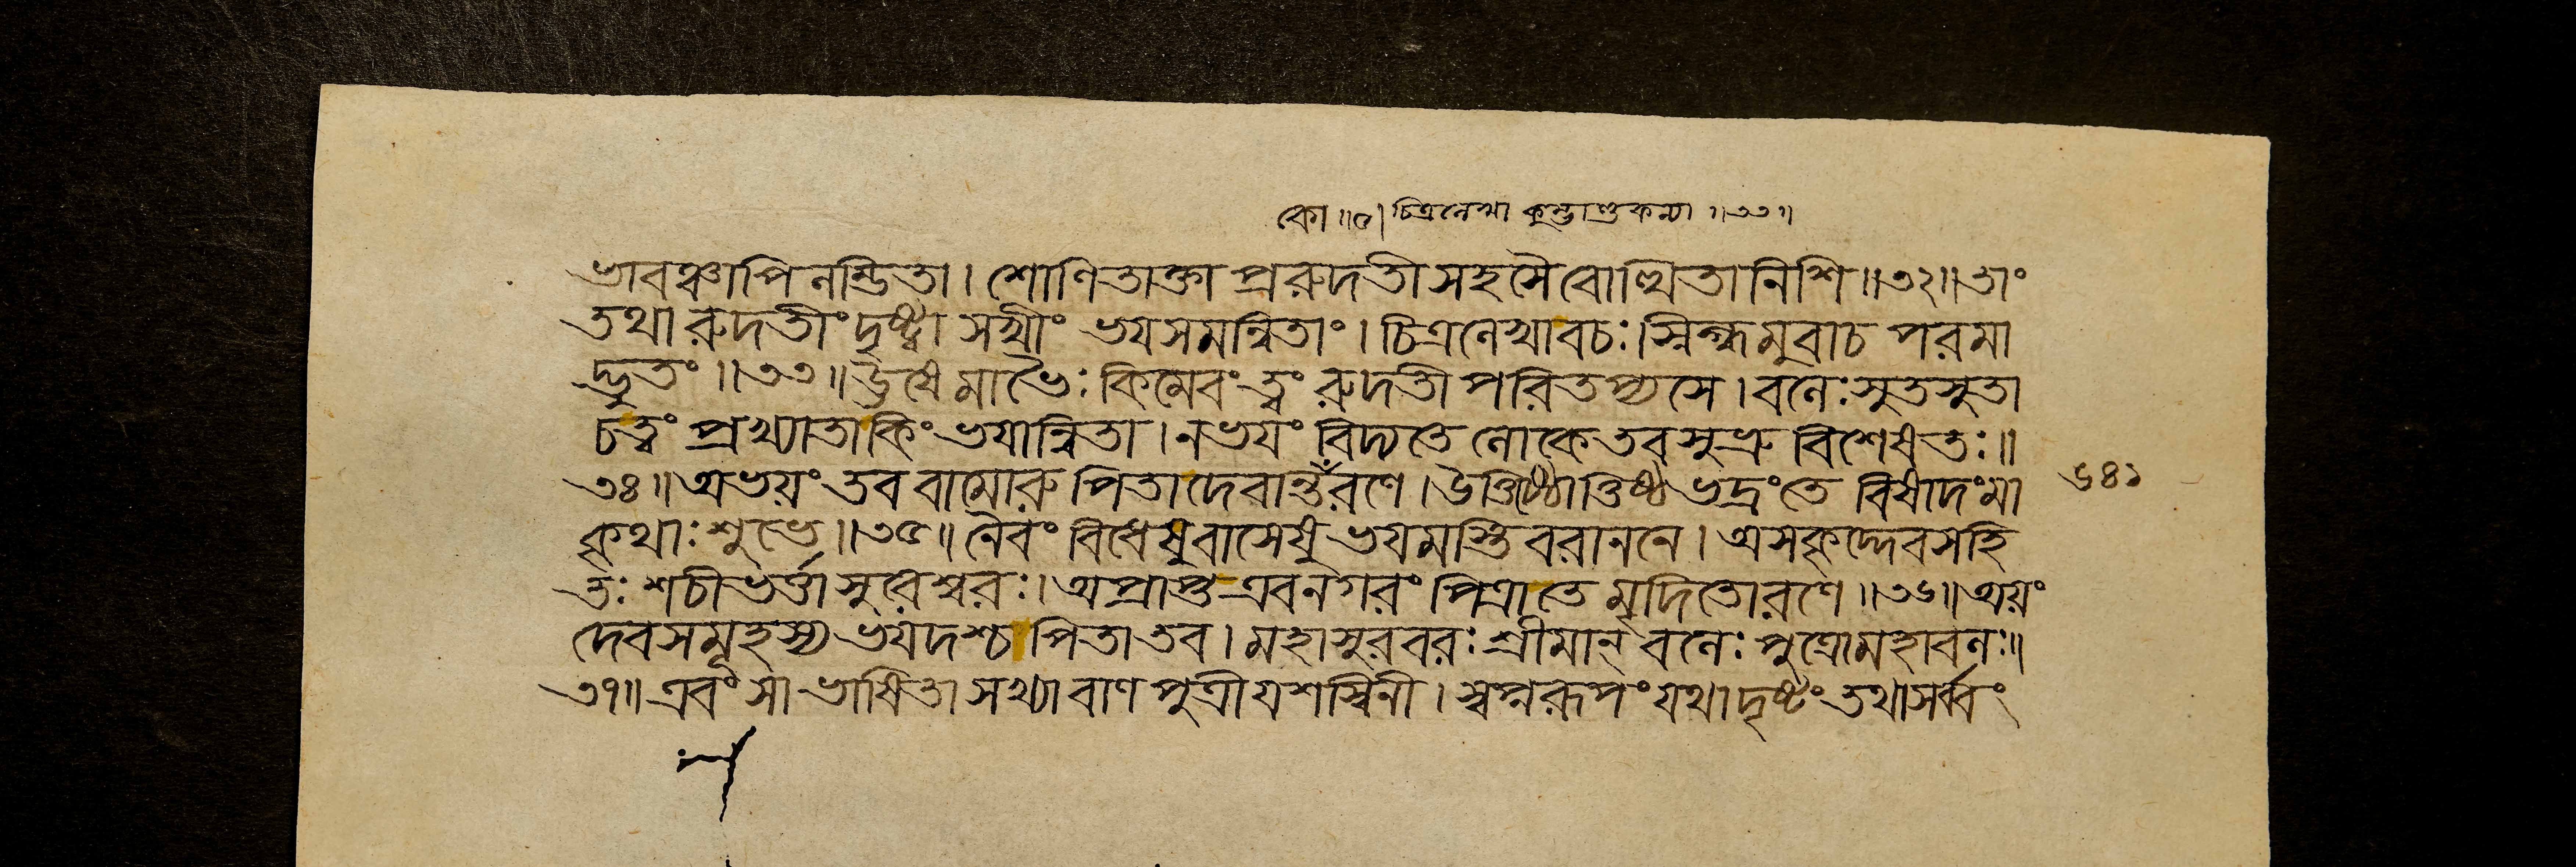 কো ॥৫। চিত্রলেখা কুম্ভাণ্ডকন্যা ॥৩৩॥
ভাবঞ্চাপি লম্ভিতা। শোণিতাক্তা প্ররুদতী সহসৈবোত্থিতা নিশি॥৩২॥ তাং
তথা রুদতীং দৃষ্ট্বা সখীং ভয়সমন্বিতাং। চিত্রলেখা বচঃ। স্নিগ্ধমুবাচ পরমা
দ্ভুতং॥৩৩॥ উষে মা ভৈঃ কিমেবং ত্বং রুদতী পরিতপ্যসে। বলেঃ সুতসুতা
চ ত্বং প্রখ্যাতা কিং ভয়ান্বিতা। ন ভয়ং বিদ্যতে লোকে তব সুভ্রু বিশেষতঃ॥
৩৪॥ অভয়ং তব বামোরু পিতা দেবান্তঁরণে। উত্তিষ্ঠোত্তিষ্ঠ ভদ্রং তে বিষাদং মা
কৃথাঃ শুভে॥৩৫॥ নৈবং বিধেষু বাসেষু ভয়মস্তি বরাননে। অসকৃদ্দেবসহি
তঃ শচীভর্ত্তা সুরেশ্বরঃ। অপ্রাপ্ত এব নগরং পিত্রা তে মৃদিতো রণে॥৩৬॥ অয়ং
দেবসমূহস্য ভয়দশ্চ পিতা তব। মহাসুরবরঃ শ্রীমান্ বলেঃ পুত্রো মহাবলঃ॥
৩৭॥ এবং সা ভাষিতা সখ্যা বাণপুত্রী যশস্বিনী। স্বপ্নরূপং যথা দৃষ্টং তথা সর্ব্বং
৬৪১